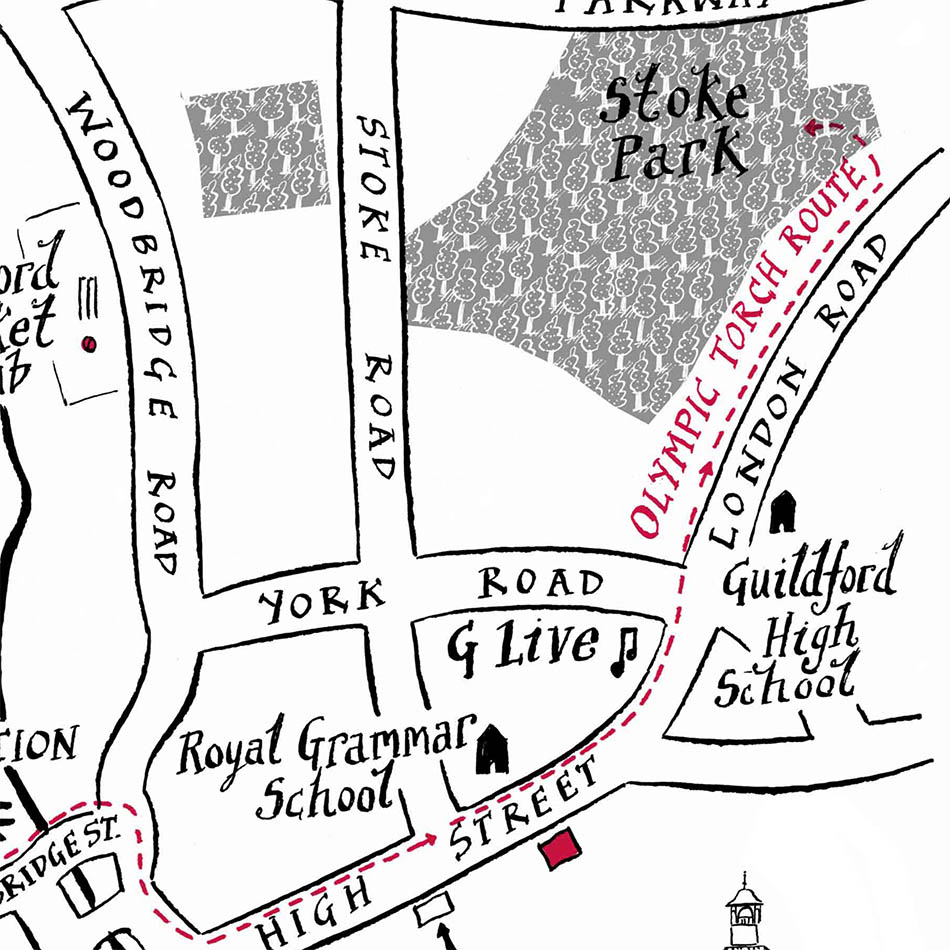 PARKWAY
Stoke
Park
WOODBRIDGE ROAD
STOKE ROAD
OLYMPIC TORCH ROUTE
LONDON ROAD
YORK ROAD
G Live
Guildford
High
School
Royal Grammar
School
BRIDGE ST.
HIGH STREET